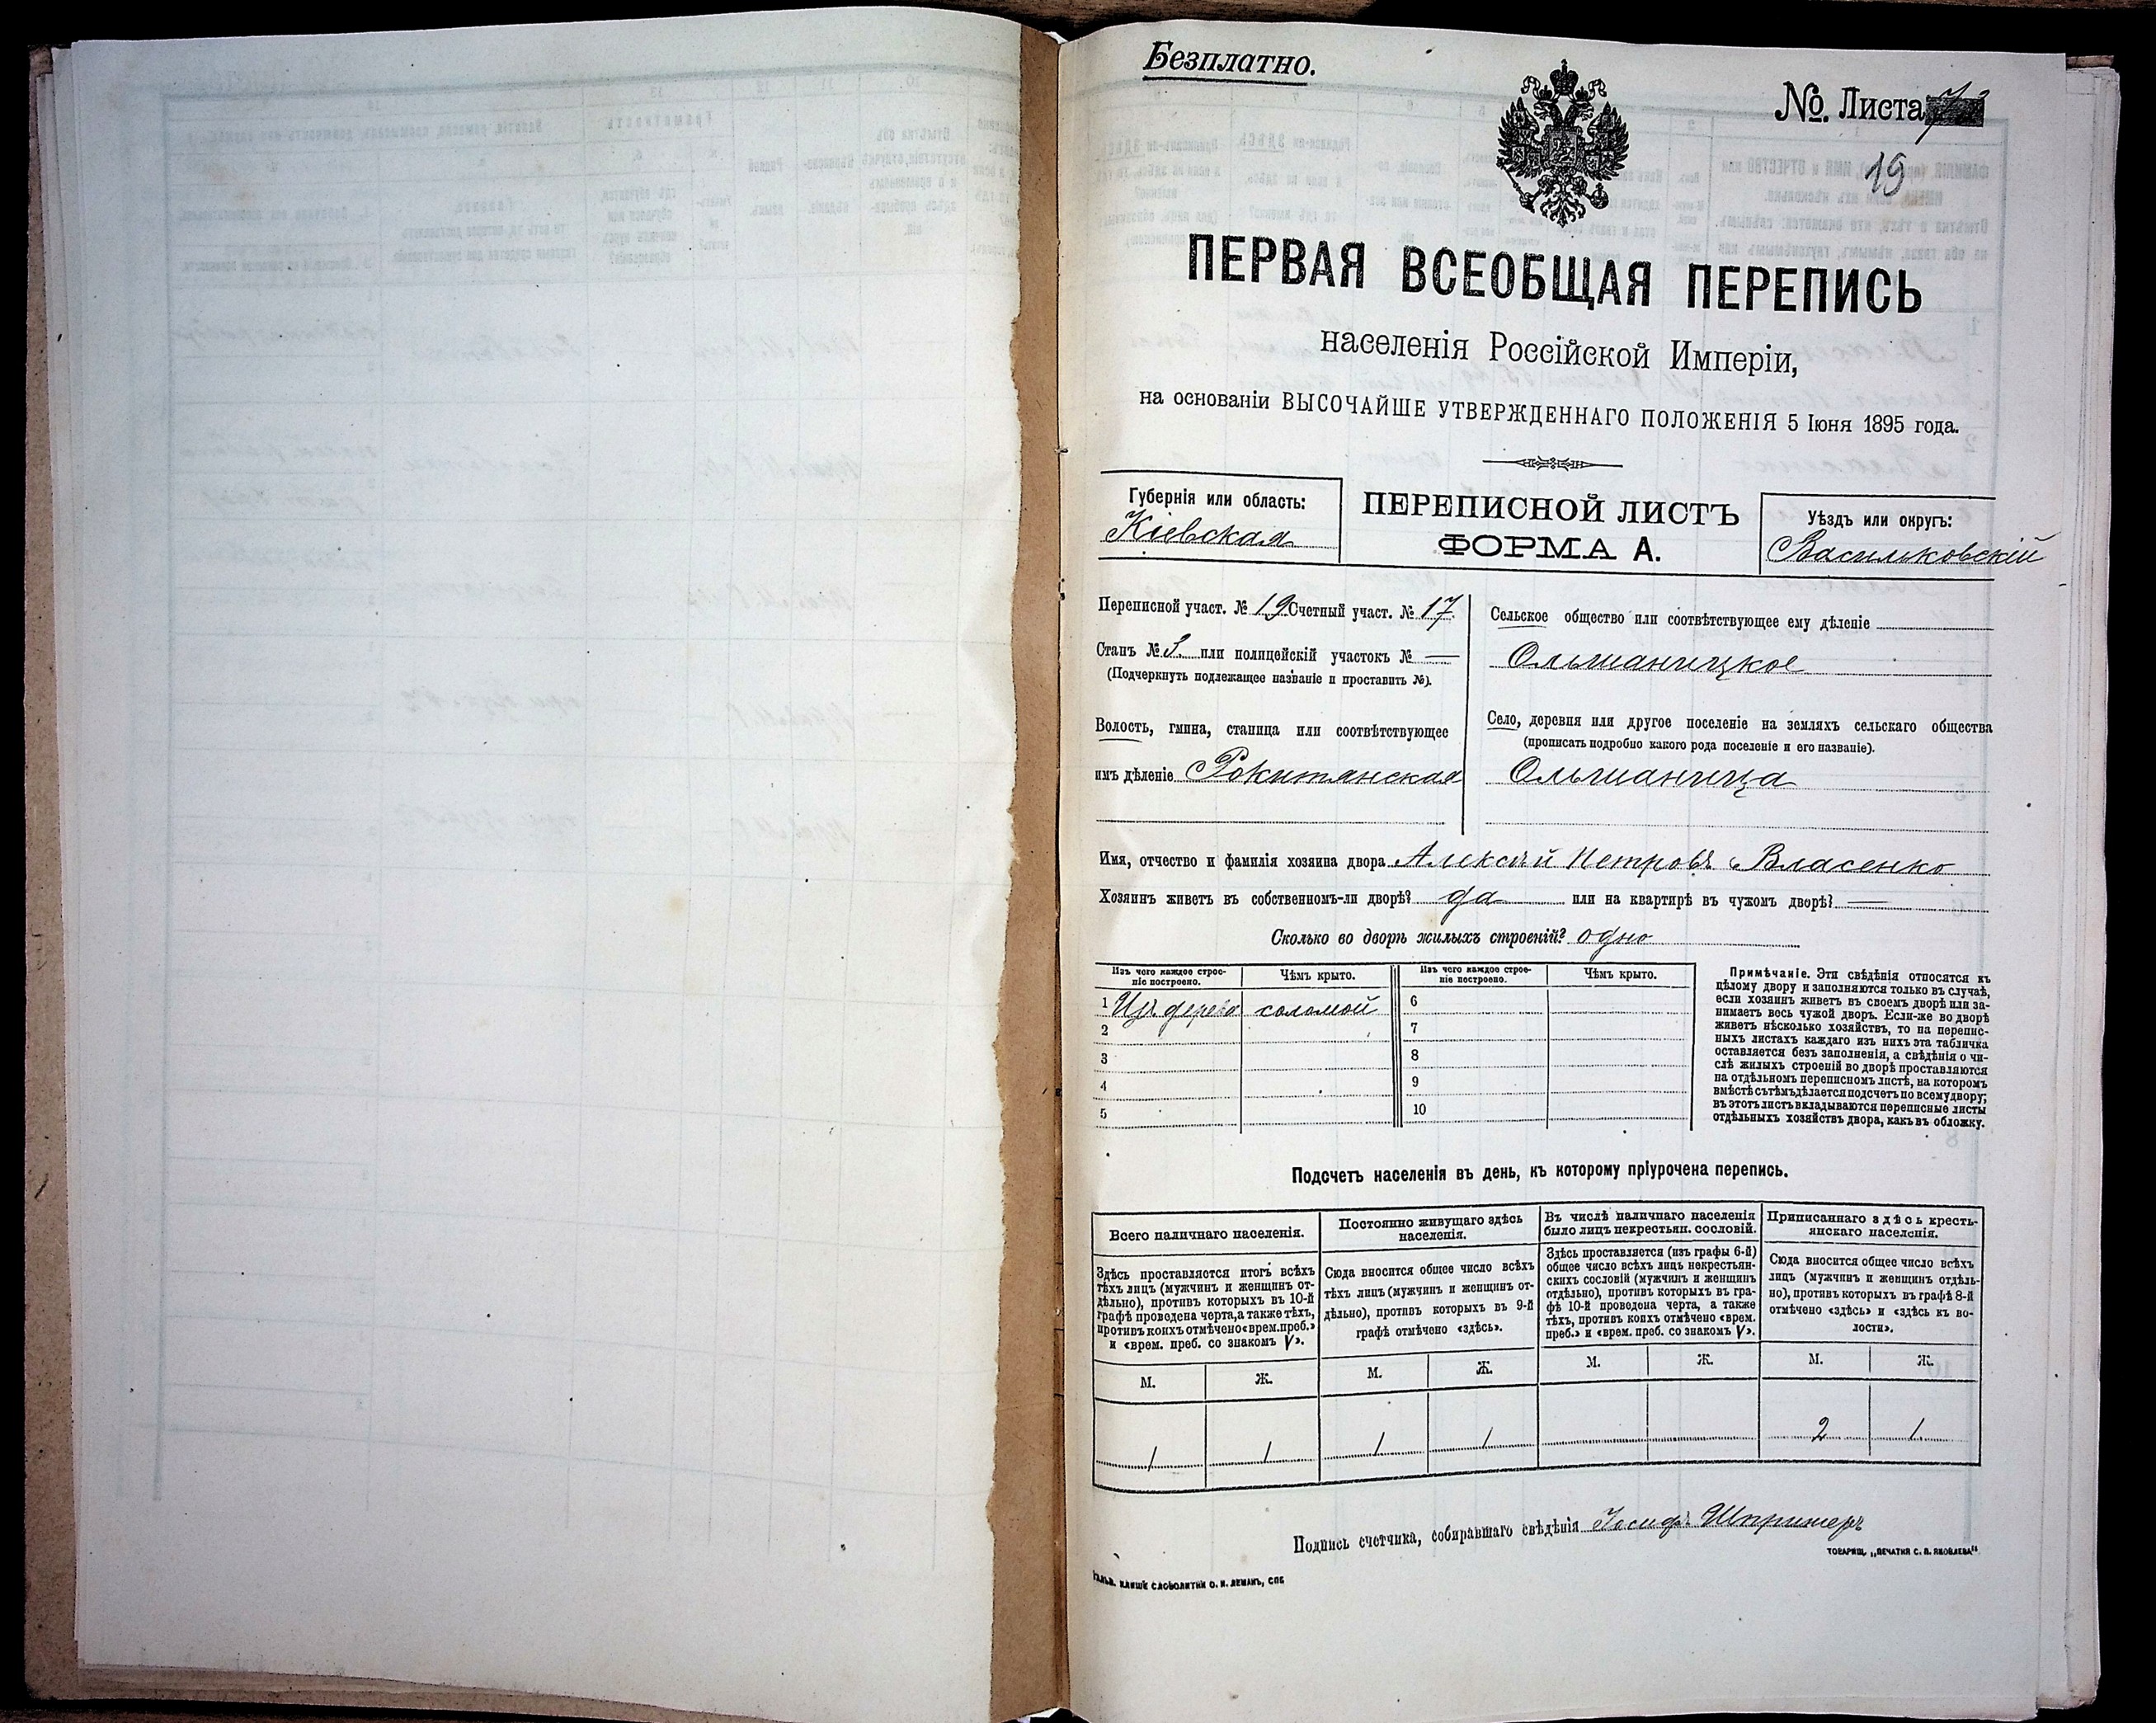 Безплатно.
№. Листа
19
ПЕРВАЯ ВСЕОБЩАЯ ПЕРЕПИСЬ
населенія Россійской Имперіи,
на основаніи ВЫСОЧАЙШЕ УТВЕРЖДЕННАГО ПОЛОЖЕНІЯ 5 Іюня 1895 года.
Губернія или область:
Кіевская
ПЕРЕПИСНОЙ ЛИСТЪ
ФОРМА А.
Уѣздъ или округъ:
Васильковскій
Переписной участ. № 19 Счетный участ. № 17.
Станъ № 3. или полицейскій участокъ № —
(Подчеркнуть подлежащее названіе и проставить №).
Волость, гмина, станица или соотвѣтствующее
имъ дѣленіе Рокитянская
Сельское общество или соотвѣтствующее ему дѣленіе
Ольшаницкое
Село, деревня или другое поселеніе на земляхъ сельскаго общества
(прописать подробно какого рода поселеніе и его названіе).
Ольшаница
Имя, отчество и фамилія хозяина двора Алексѣй Петровъ Власенко
Хозяинъ живетъ въ собственномъ-ли дворѣ? да или на квартирѣ въ чужомъ дворѣ? —
Сколько во дворѣ жилыхъ строеній? одно
Изъ чего каждое строе-
ніе построено.
Чѣмъ крыто.
1 Изъ дерева соломой
2
3
4
5
Изъ чего каждое строе-
ніе построено.
Чѣмъ крыто.
6
7
8
9
10
Примѣчаніе. Эти свѣдѣнія относятся къ
цѣлому двору и заполняются только въ случаѣ,
если хозяинъ живетъ въ своемъ дворѣ или за-
нимаетъ весь чужой дворъ. Если-же во дворѣ
живетъ нѣсколько хозяйствъ, то на перепис-
ныхъ листахъ каждаго изъ нихъ эта табличка
оставляется безъ заполненія, а свѣдѣнія о чи-
слѣ жилыхъ строеній во дворѣ проставляются
на отдѣльномъ переписномъ листѣ, на которомъ
вмѣстѣ съ тѣмъ дѣлается подсчетъ по всему двору;
въ этотъ листъ вкладываются переписные листы
отдѣльныхъ хозяйствъ двора, какъ въ обложку.
Подсчетъ населенія въ день, къ которому пріурочена перепись.
Всего наличнаго населенія.
Здѣсь проставляется итогъ всѣхъ
тѣхъ лицъ (мужчинъ и женщинъ от-
дѣльно), противъ которыхъ въ 10-й
графѣ проведена черта, а также тѣхъ,
противъ коихъ отмѣчено «врем. преб.»
и «врем. преб. со знакомъ V».
М. Ж.
1 1
Постоянно живущаго здѣсь
населенія.
Сюда вносится общее число всѣхъ
тѣхъ лицъ (мужчинъ и женщинъ от-
дѣльно), противъ которыхъ въ 9-й
графѣ отмѣчено «здѣсь».
М. Ж.
1 1
Въ числѣ наличнаго населенія
было лицъ некрестьян. сословій.
Здѣсь проставляется (изъ графы 6-й)
общее число всѣхъ лицъ некрестьян-
скихъ сословій (мужчинъ и женщинъ
отдѣльно), противъ которыхъ въ гра-
фѣ 10-й проведена черта, а также
тѣхъ, противъ коихъ отмѣчено «врем.
преб.» и «врем. преб. со знакомъ V».
М. Ж.
Приписаннаго здѣсь кресть-
янскаго населенія.
Сюда вносится общее число всѣхъ
лицъ (мужчинъ и женщинъ отдѣль-
но), противъ которыхъ въ графѣ 8-й
отмѣчено «здѣсь» и «здѣсь къ во-
лости».
М. Ж.
2 1
Подпись счетчика, собиравшаго свѣдѣнія Іосифъ
ТОВАРИЩ. „ПЕЧАТНЯ С. П. ЯКОВЛЕВА"
СЛОВОЛИТНИ О. И. ЛЕМАНЪ, СПБ